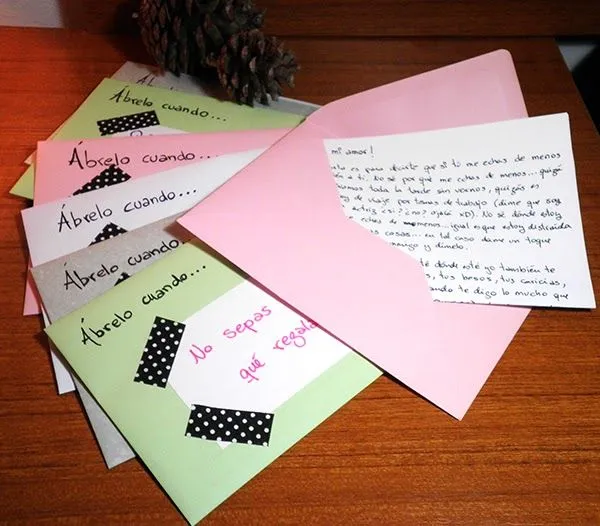 Ábrelo cuando...
Ábrelo cuando...
Ábrelo cuando...
Ábrelo cuando...
Ábrelo cuando...
Ábrelo cuando...
No sepas
qué regala
mi amor!
es para decirte que si tú me echas de menos
a ti. No sé por qué me echas de menos... quizá
toda la tarde sin vernos, quizás es
de viaje por temas de trabajo (dime que soy
actriz ¿sí? ¿no? ojalá xD). No sé dónde estoy
echas de menos... igual es que estoy distraída
cosas... en tal caso dame un toque
y dímelo.
té dónde esté yo también te
, tus besos, tus caricias,
ando te digo lo mucho que